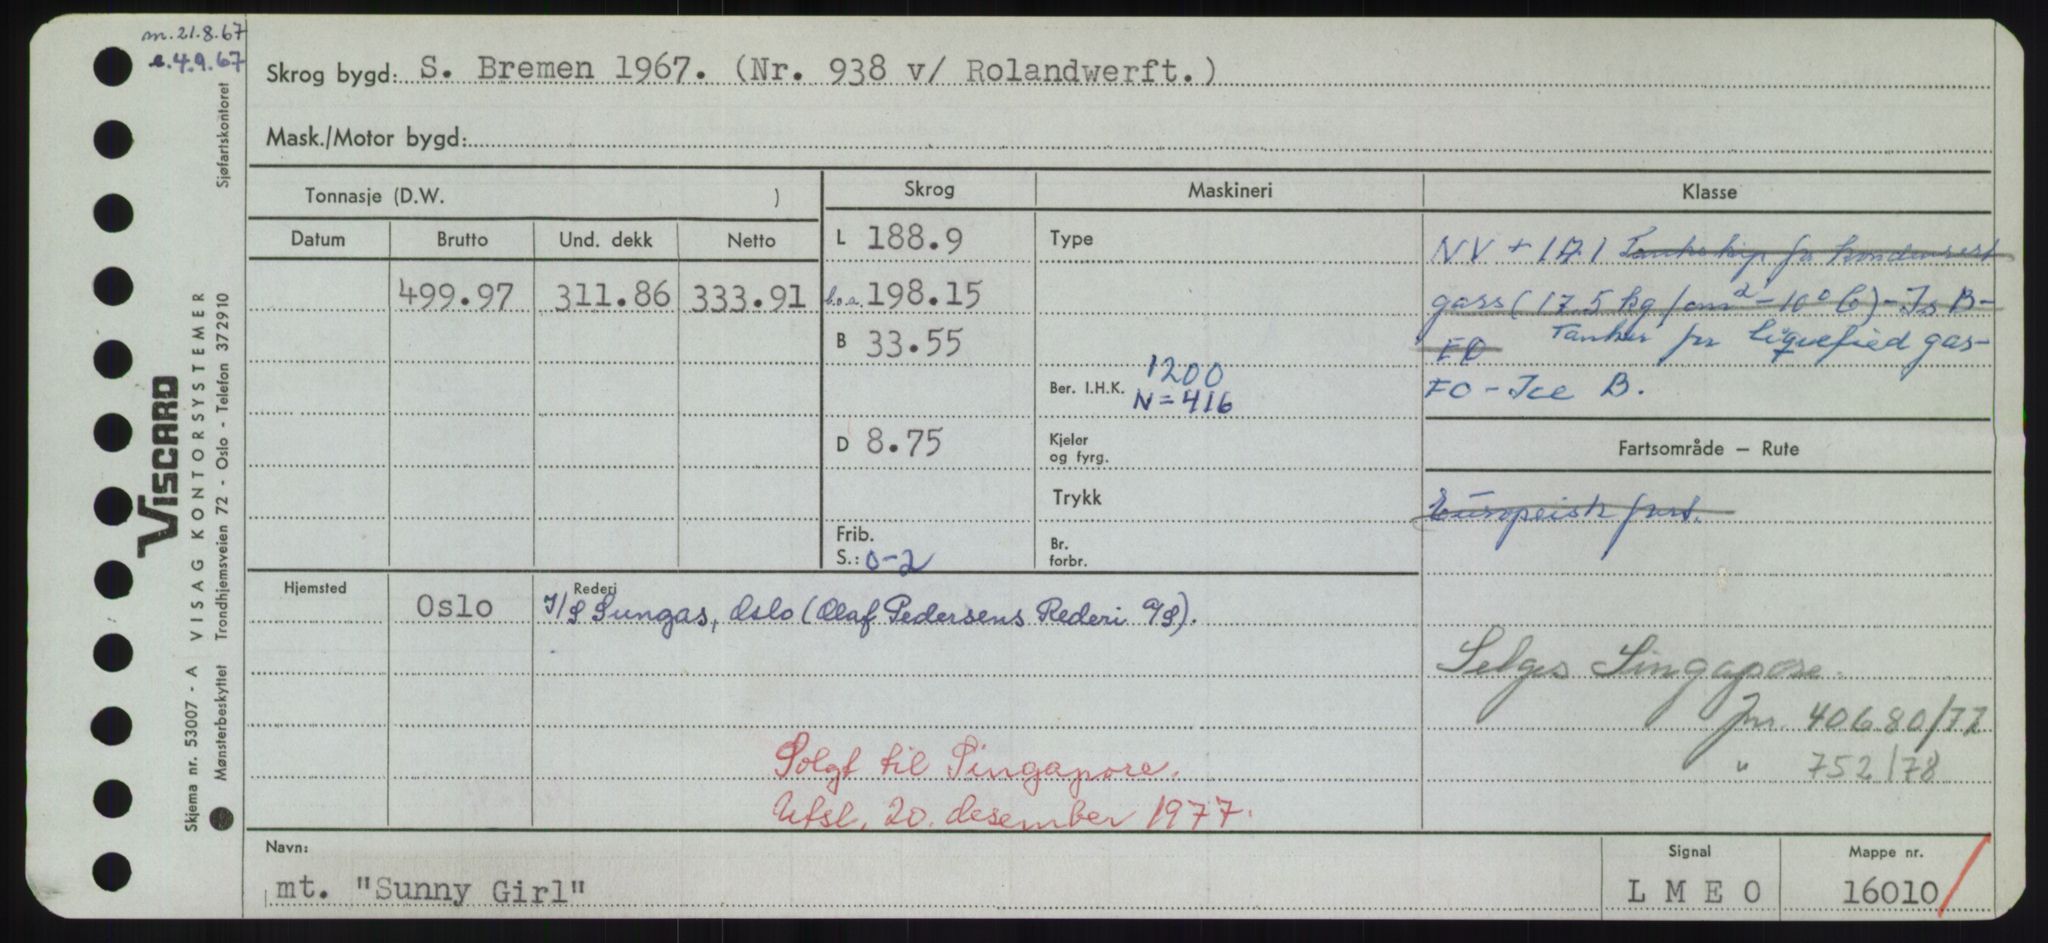 m. 21.8.67
e. 4.9.67
Skrog bygd: S. Bremen 1967. (Nr. 938 v/ Rolandwerft.)
Mask./Motor bygd:
Tonnasje (D.W. )
Skrog
Maskineri
Klasse
Datum
Brutto
Und. dekk
Netto
499.97
311.86
333.91
L 188.9
b.o.a. 198.15
B 33.55
D 8.75
Frib.
S.: 0-2
Type
Ber. I.H.K. 1200
N = 416
Kjeler
og fyrg.
Trykk
Br.
forbr.
NV + 1A1 Tankskip for kondensert
gass (17.5 kg/cm2 -10° C) - Is B -
EO Tanker for liquefied gas-
EO - Ice B.
Fartsområde — Rute
Europeisk fart.
Hjemsted
Oslo
Rederi
I/S Sungas, Oslo (Olaf Pedersens Rederi A/S).
Selges Singapore.
Jnr. 40680/77
" 752/78
Solgt til Singapore.
Utsl. 20. desember 1977.
Navn:
mt. "Sunny Girl"
Signal
L M E O
Mappe nr.
16010
Skjema nr. 53007 - A VISAG KONTORSYSTEMER
VISCARD
Mønsterbeskyttet Trondhjemsveien 72 - Oslo - Telefon 372910 Sjøfartskontoret